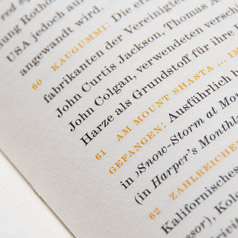 ung Rotho
USA jedoch auf
angewandt wird.
60 KAUGUMMI: Die er
fabrikanten der Vereinigte
John Curtis Jackson, Thomas A
John Colgan, verwendeten versch
Harze als Grundstoff für ihre
61 AM MOUNT SHASTA ... IM
GEFANGEN: Ausführlich b
in ›Snow-Storm at Mo
(in Harper's Monthl
62 ZAHLREICHE
Kalifornisches
ssor), Kol